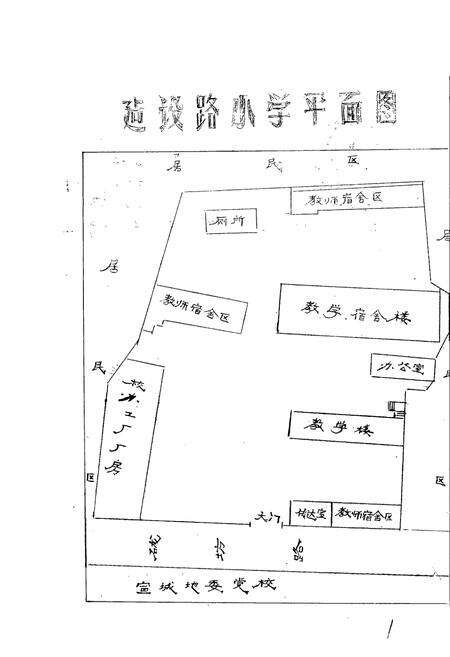 建设路小学平面图
居 民 区
教师宿舍区
厕所
居
居
教师宿舍区
教学.宿舍楼
民
办公室
校办工厂厂房
教学楼
区
区
大门
传达室
教师宿舍区
坊 路
宣城地委党校
1